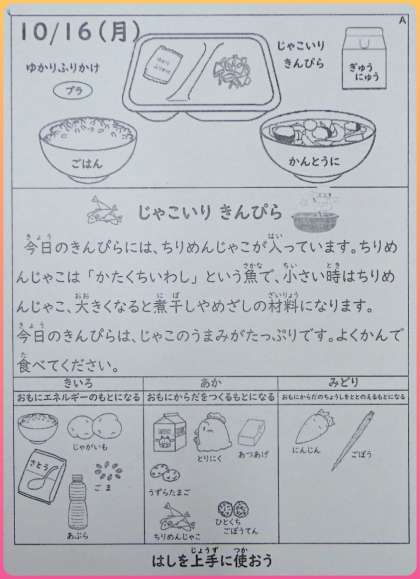 A
10/16(月)
じゃこいり
きんぴら
ぎゅう
にゅう
ゆかりふりかけ
プラ
ごはん
かんとうに
じゃこいり きんぴら
今日のきんぴらには、ちりめんじゃこが入っています。ちりめ
んじゃこは「かたくちいわし」という魚で、小さい時はちりめ
んじゃこ、大きくなると煮干しやめざしの材料になります。
今日のきんぴらは、じゃこのうまみがたっぷりです。よくかんで
食べてください。
きいろ
おもにエネルギーのもとになる
じゃがいも
さとう
ごま
あぶら
あか
おもにからだをつくるもとになる
とりにく
あつあげ
うずらたまご
ちりめんじゃこ
ひとくち
ごぼうてん
みどり
おもにからだのちょうしをととのえるもとになる
にんじん
ごぼう
はしを上手に使おう